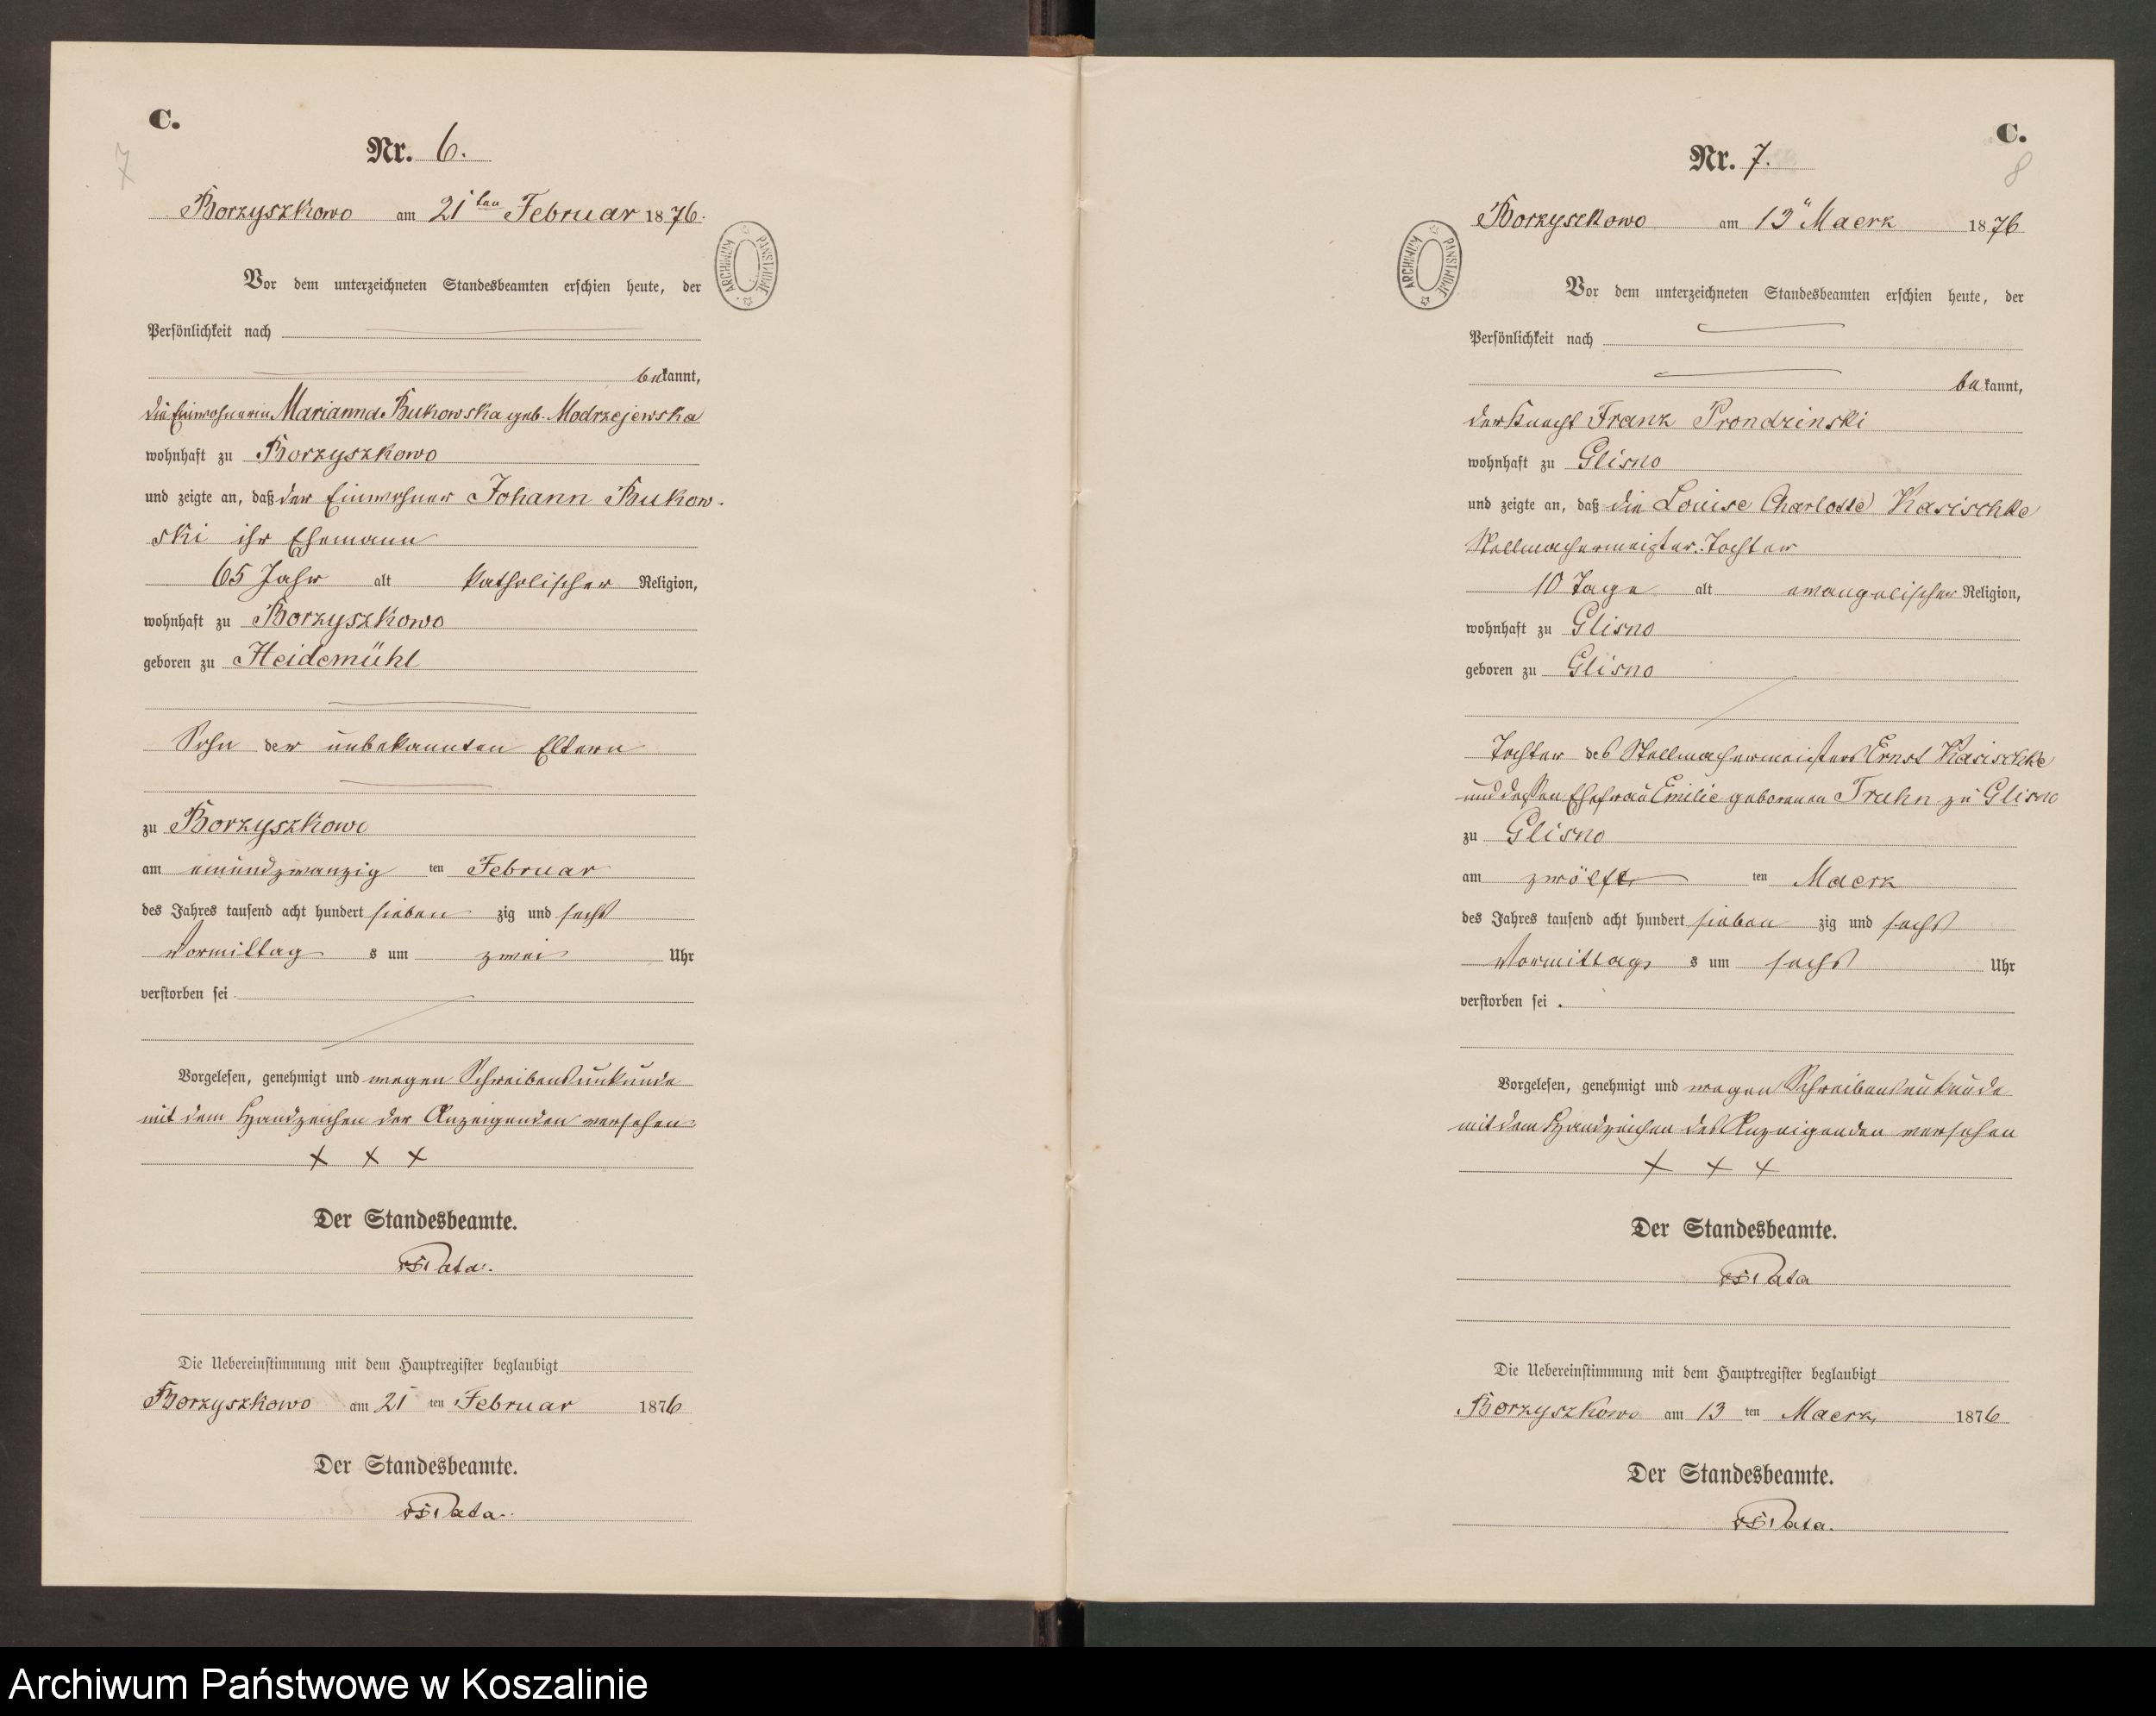 C.
7
Nr. 6.
Borzyszkowo am 21ten Februar 1876.
ARCHIWUM PAŃSTWOWE
Vor dem unterzeichneten Standesbeamten erschien heute, der
Persönlichkeit nach
bekannt,
die Einwohnerin Marianna Bukowska geb. Modrzejewska
wohnhaft zu Borzyszkowo
und zeigte an, daß der Einwohner Johann Bukow-
ski ihr Ehemann
65 Jahr alt katholischer Religion,
wohnhaft zu Borzyszkowo
geboren zu Heidemühl
Sohn der unbekannten Eltern
zu Borzyszkowo
am einundzwanzig ten Februar
des Jahres tausend acht hundert sieben zig und sechs
Vormittag s um zwei Uhr
verstorben sei
Vorgelesen, genehmigt und wegen Schreibensunkunde
mit dem Handzeichen der Anzeigenden versehen.
+ + +
Der Standesbeamte.
Pata.
Die Uebereinstimmung mit dem Hauptregister beglaubigt
Borzyszkowo am 21 ten Februar 1876
Der Standesbeamte.
Pata.
C.
8
Nr. 7.
Borzyszkowo am 13" Maerz 1876
ARCHIWUM PAŃSTWOWE
Vor dem unterzeichneten Standesbeamten erschien heute, der
Persönlichkeit nach
bekannt,
der Knecht Franz Prondzinski
wohnhaft zu Glisno
und zeigte an, daß die Louise Charlotte Karischke
Stellmachermeister-Tochter
10 Tage alt evangelischer Religion,
wohnhaft zu Glisno
geboren zu Glisno
Tochter des Stellmachermeisters Ernst Karischke
und dessen Ehefrau Emilie geborenen Truhn zu Glisno
zu Glisno
am zwölf ten Maerz
des Jahres tausend acht hundert sieben zig und sechs
Vormittags s um sechs Uhr
verstorben sei .
Vorgelesen, genehmigt und wegen Schreibensunkunde
mit dem Handzeichen des Anzeigenden versehen
+ + +
Der Standesbeamte.
Pata
Die Uebereinstimmung mit dem Hauptregister beglaubigt
Borzyszkowo am 13 ten Maerz, 1876
Der Standesbeamte.
Pata.
Archiwum Państwowe w Koszalinie